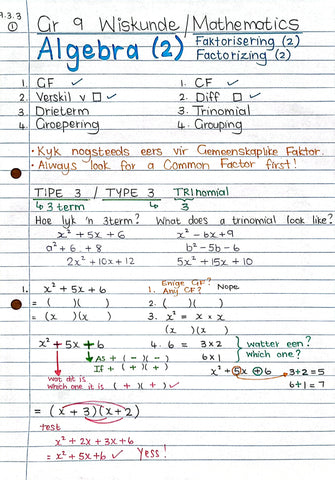 9.3.3
①
Gr 9 Wiskunde / Mathematics
Algebra (2) Faktorisering (2)
Factorizing (2)
1. GF ✓ 1. CF ✓
2. Verskil v □ ✓ 2. Diff □ ✓
3. Drieterm 3. Trinomial
4. Groepering 4. Grouping
• Kyk nogsteeds eers vir Gemeenskaplike Faktor.
• Always look for a Common Factor first!
TIPE 3 / TYPE 3 TRInomial
↳ 3 term ↳ 3
Hoe lyk 'n 3term? What does a trinomial look like?
x² + 5x + 6 x² - 6x + 9
a² + 6 + 8 b² - 5b - 6
2x² + 10x + 12 5x² + 15x + 10
1. x² + 5x + 6 1. Enige GF? Any CF? Nope
= ( )( ) 2. ( )( )
= (x )(x ) 3. x² = x × x
(x )(x )
x² + 5x + 6 4. 6 = 3 × 2 } watter een?
As + (-)(-) 6 × 1 } Which one?
If + (+)(+)
wat dit is x² + 5x + 6 → 3+2=5
which one it is (+)(+) ✓ 6+1=7
= (x + 3)(x + 2)
test
x² + 2x + 3x + 6
= x² + 5x + 6 ✓ Yess!